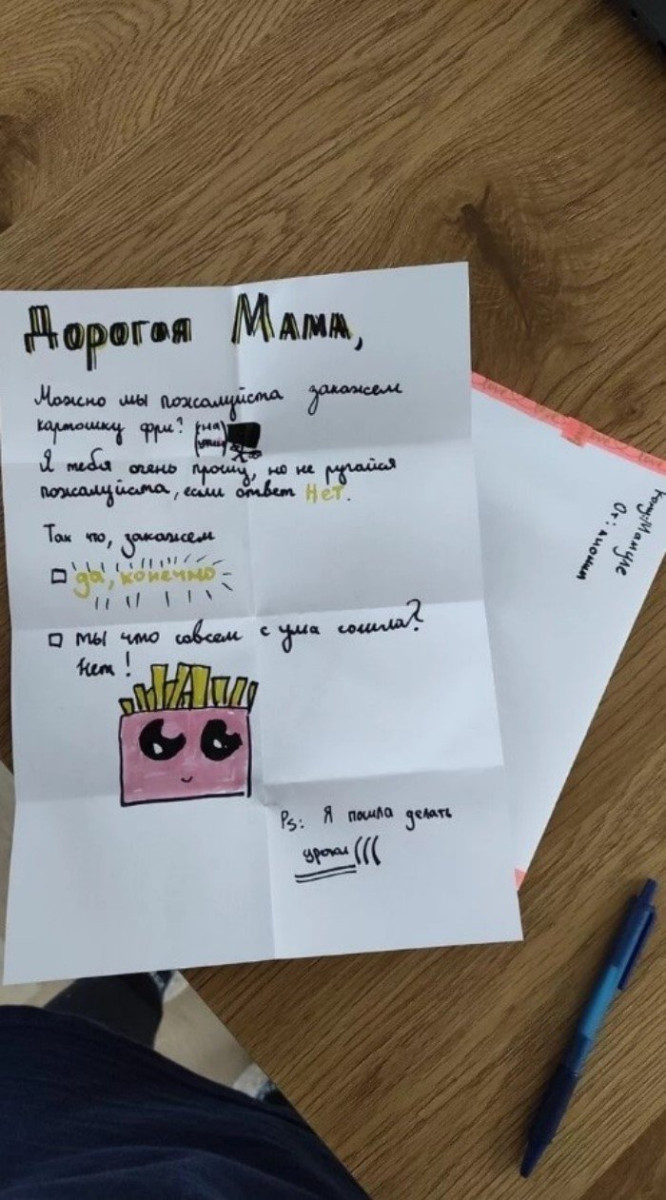 Дорогая Мама,
Можно мы пожалуйста закажем
картошку фри? (на
Я тебя очень прошу, но не ругайся
пожалуйста, если ответ Нет.
Так что, закажем
да, конечно
ты что совсем с ума сошла?
Нет!
Ps: Я пошла делать
уроки(((
Кому: Мамуле
От:
love